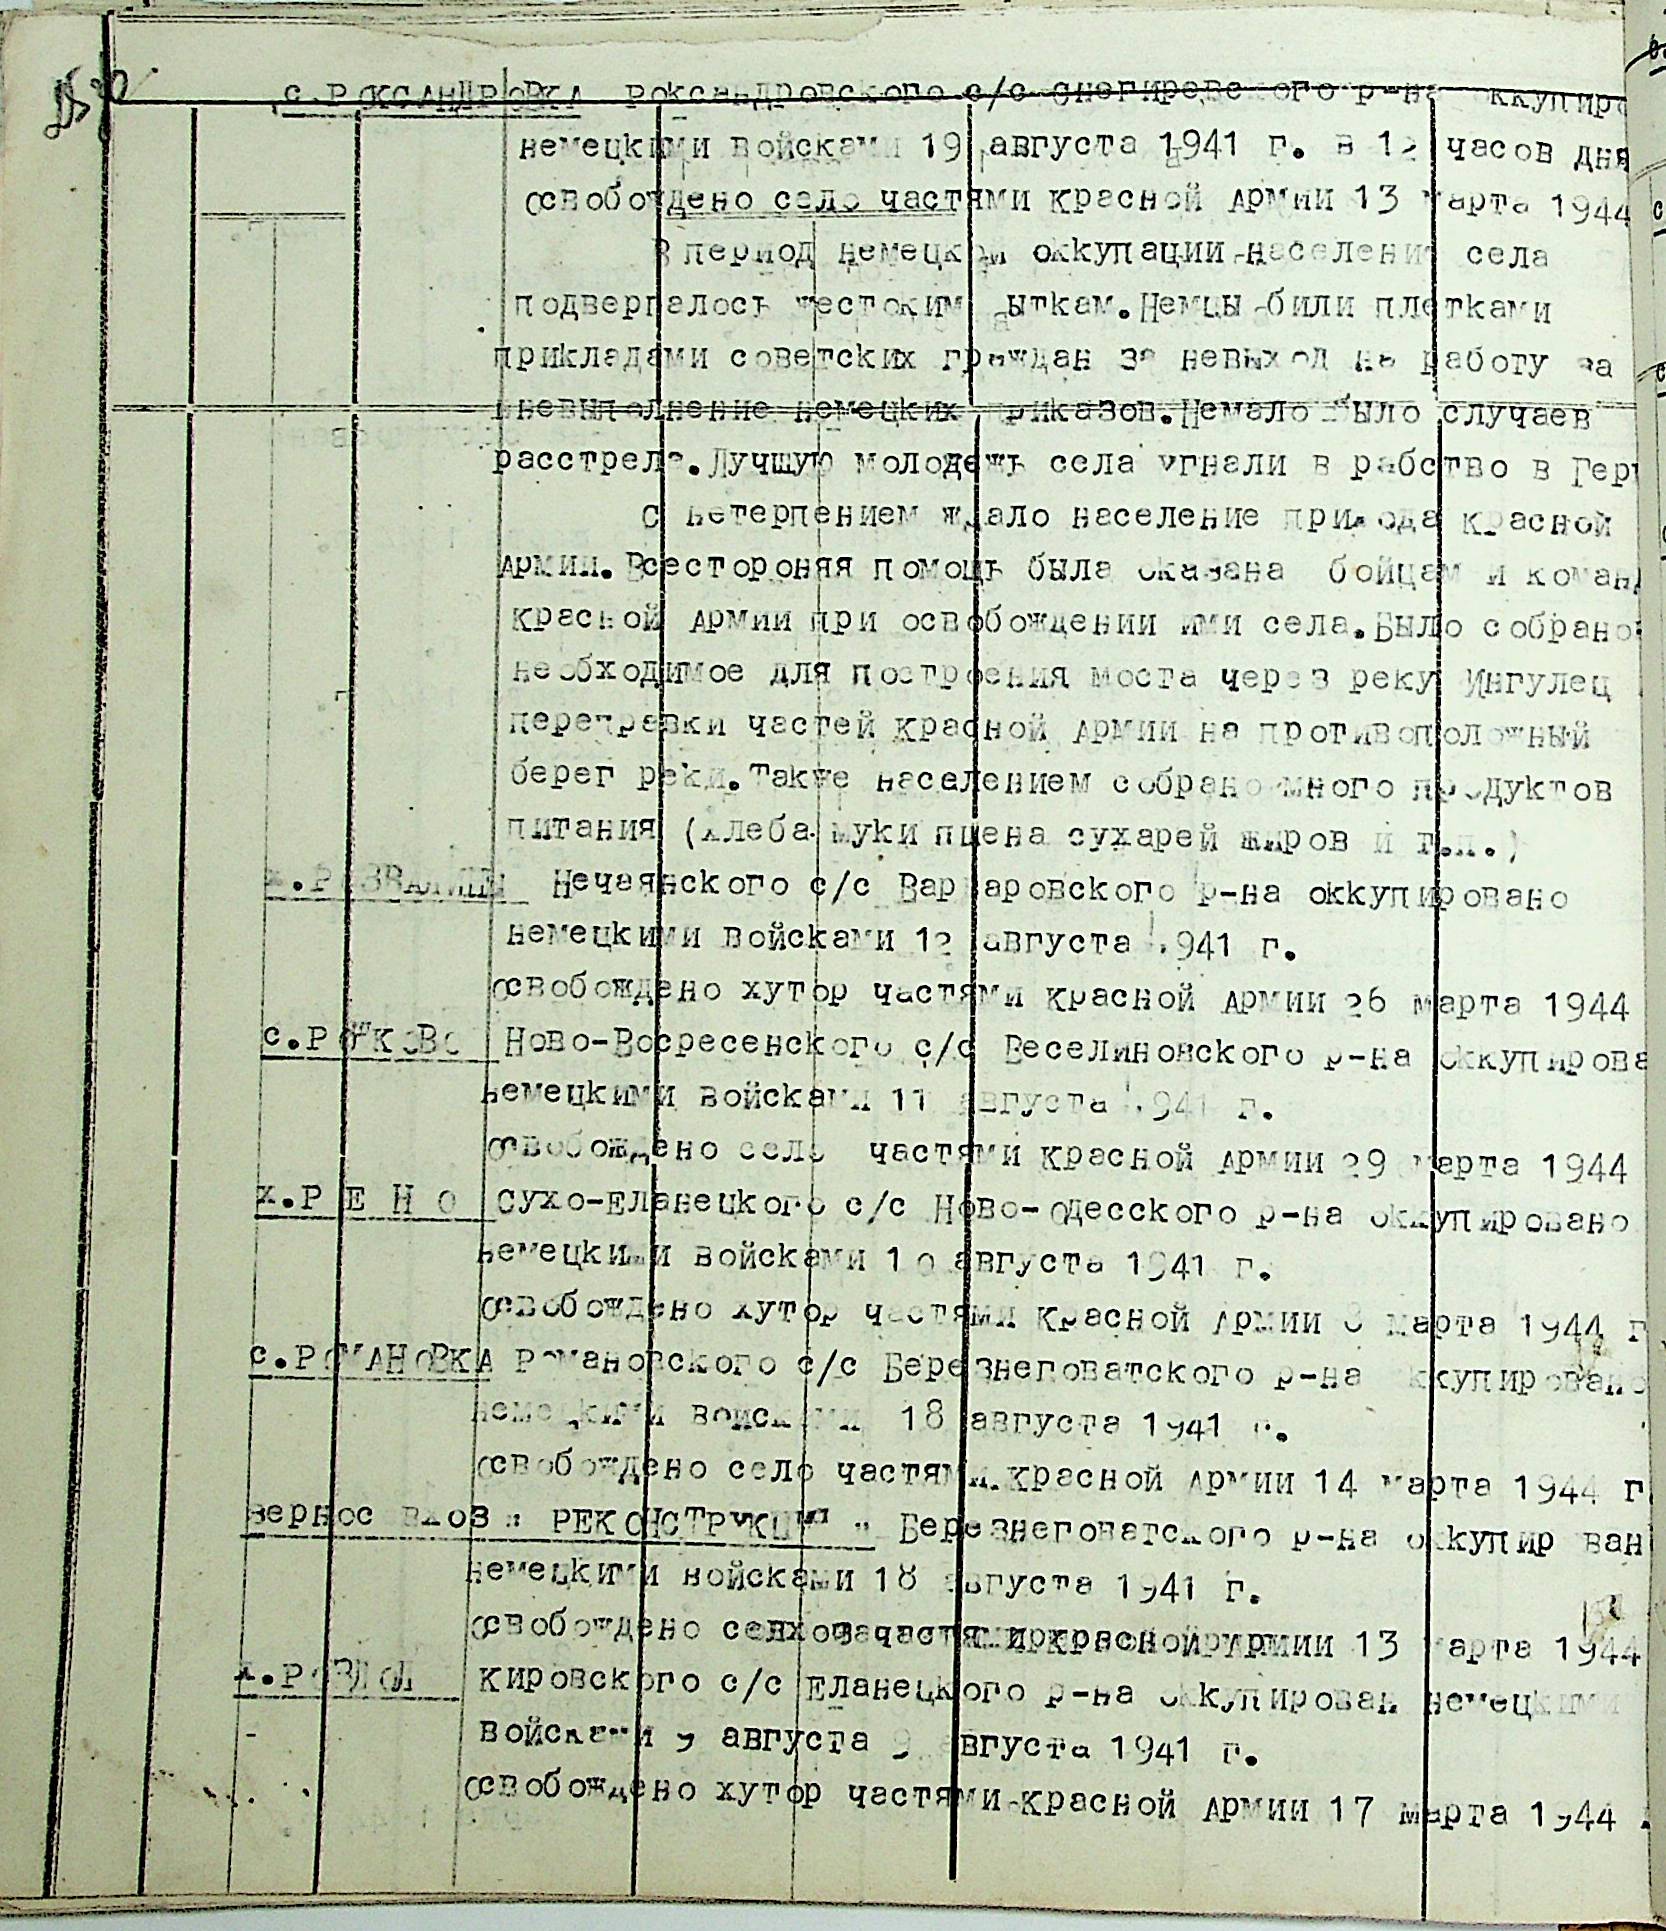 с.РОКСАНДРОВКА Роксандровского с/с Снегиревского р-на оккупиро
немецкими войсками 19 августа 1941 г. в 12 часов дня
Освобождено село частями Красной Армии 13 марта 1944
В период немецкой оккупации население села
подвергалось жестоким пыткам.Немцы били плетками
прикладами советских граждан за невыход на работу за
невыполнение немецких приказов.Немало было случаев
расстрела.Лучшую молодежь села угнали в рабство в Гер
С нетерпением ждало население прихода Красной
Армии.Всестороняя помощь была оказана бойцам и коман
Красной Армии при освобождении ими села.Было собрано
необходимое для построения моста через реку Ингулец
переправки частей Красной Армии на противоположный
берег реки.Также населением собрано много продуктов
питания (хлеба муки пшена сухарей жиров и т.п.)
х. Нечаянского с/с Варваровского р-на оккупировано
немецкими войсками 12 августа 1941 г.
Освобождено хутор частями Красной Армии 26 марта 1944
с. Ново-Восресенского с/с Веселиновского р-на оккупирова
немецкими войсками 11 августа 1941 г.
Освобождено село частями Красной Армии 29 марта 1944
х.Р Е Н О Сухо-Еланецкого с/с Ново-Одесского р-на оккупировано
немецкими войсками 10 августа 1941 г.
Освобождено хутор частями Красной Армии 8 марта 1944 г
с.РОМАНОВКА Романовского с/с Березнеговатского р-на оккупировано
немецкими войсками 18 августа 1941 г.
Освобождено село частями Красной Армии 14 марта 1944 г
Зерносовхоз " РЕКОНСТРУКЦИЯ " Березнеговатского р-на оккупирован
немецкими войсками 18 августа 1941 г.
Освобождено частями Красной Армии 13 марта 1944
х.РОЗДОЛ Кировского с/с Еланецкого р-на оккупирован немецкими
войсками 9 августа 9 августа 1941 г.
Освобождено хутор частями Красной Армии 17 марта 1944